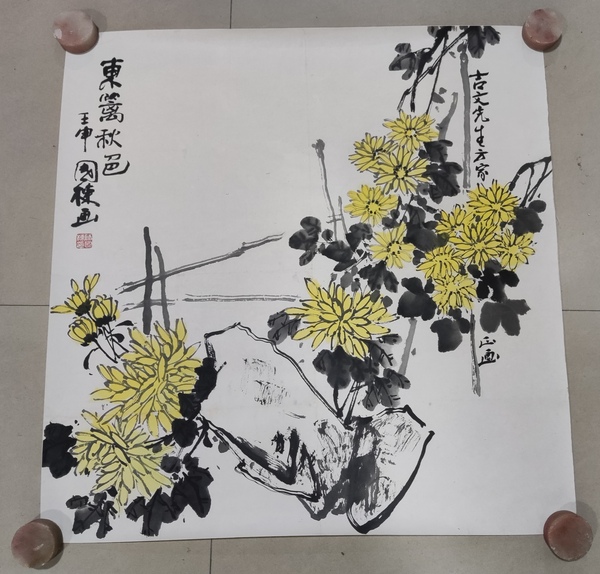 吉文先生方家
正画
東篱秋色
壬申國棟画